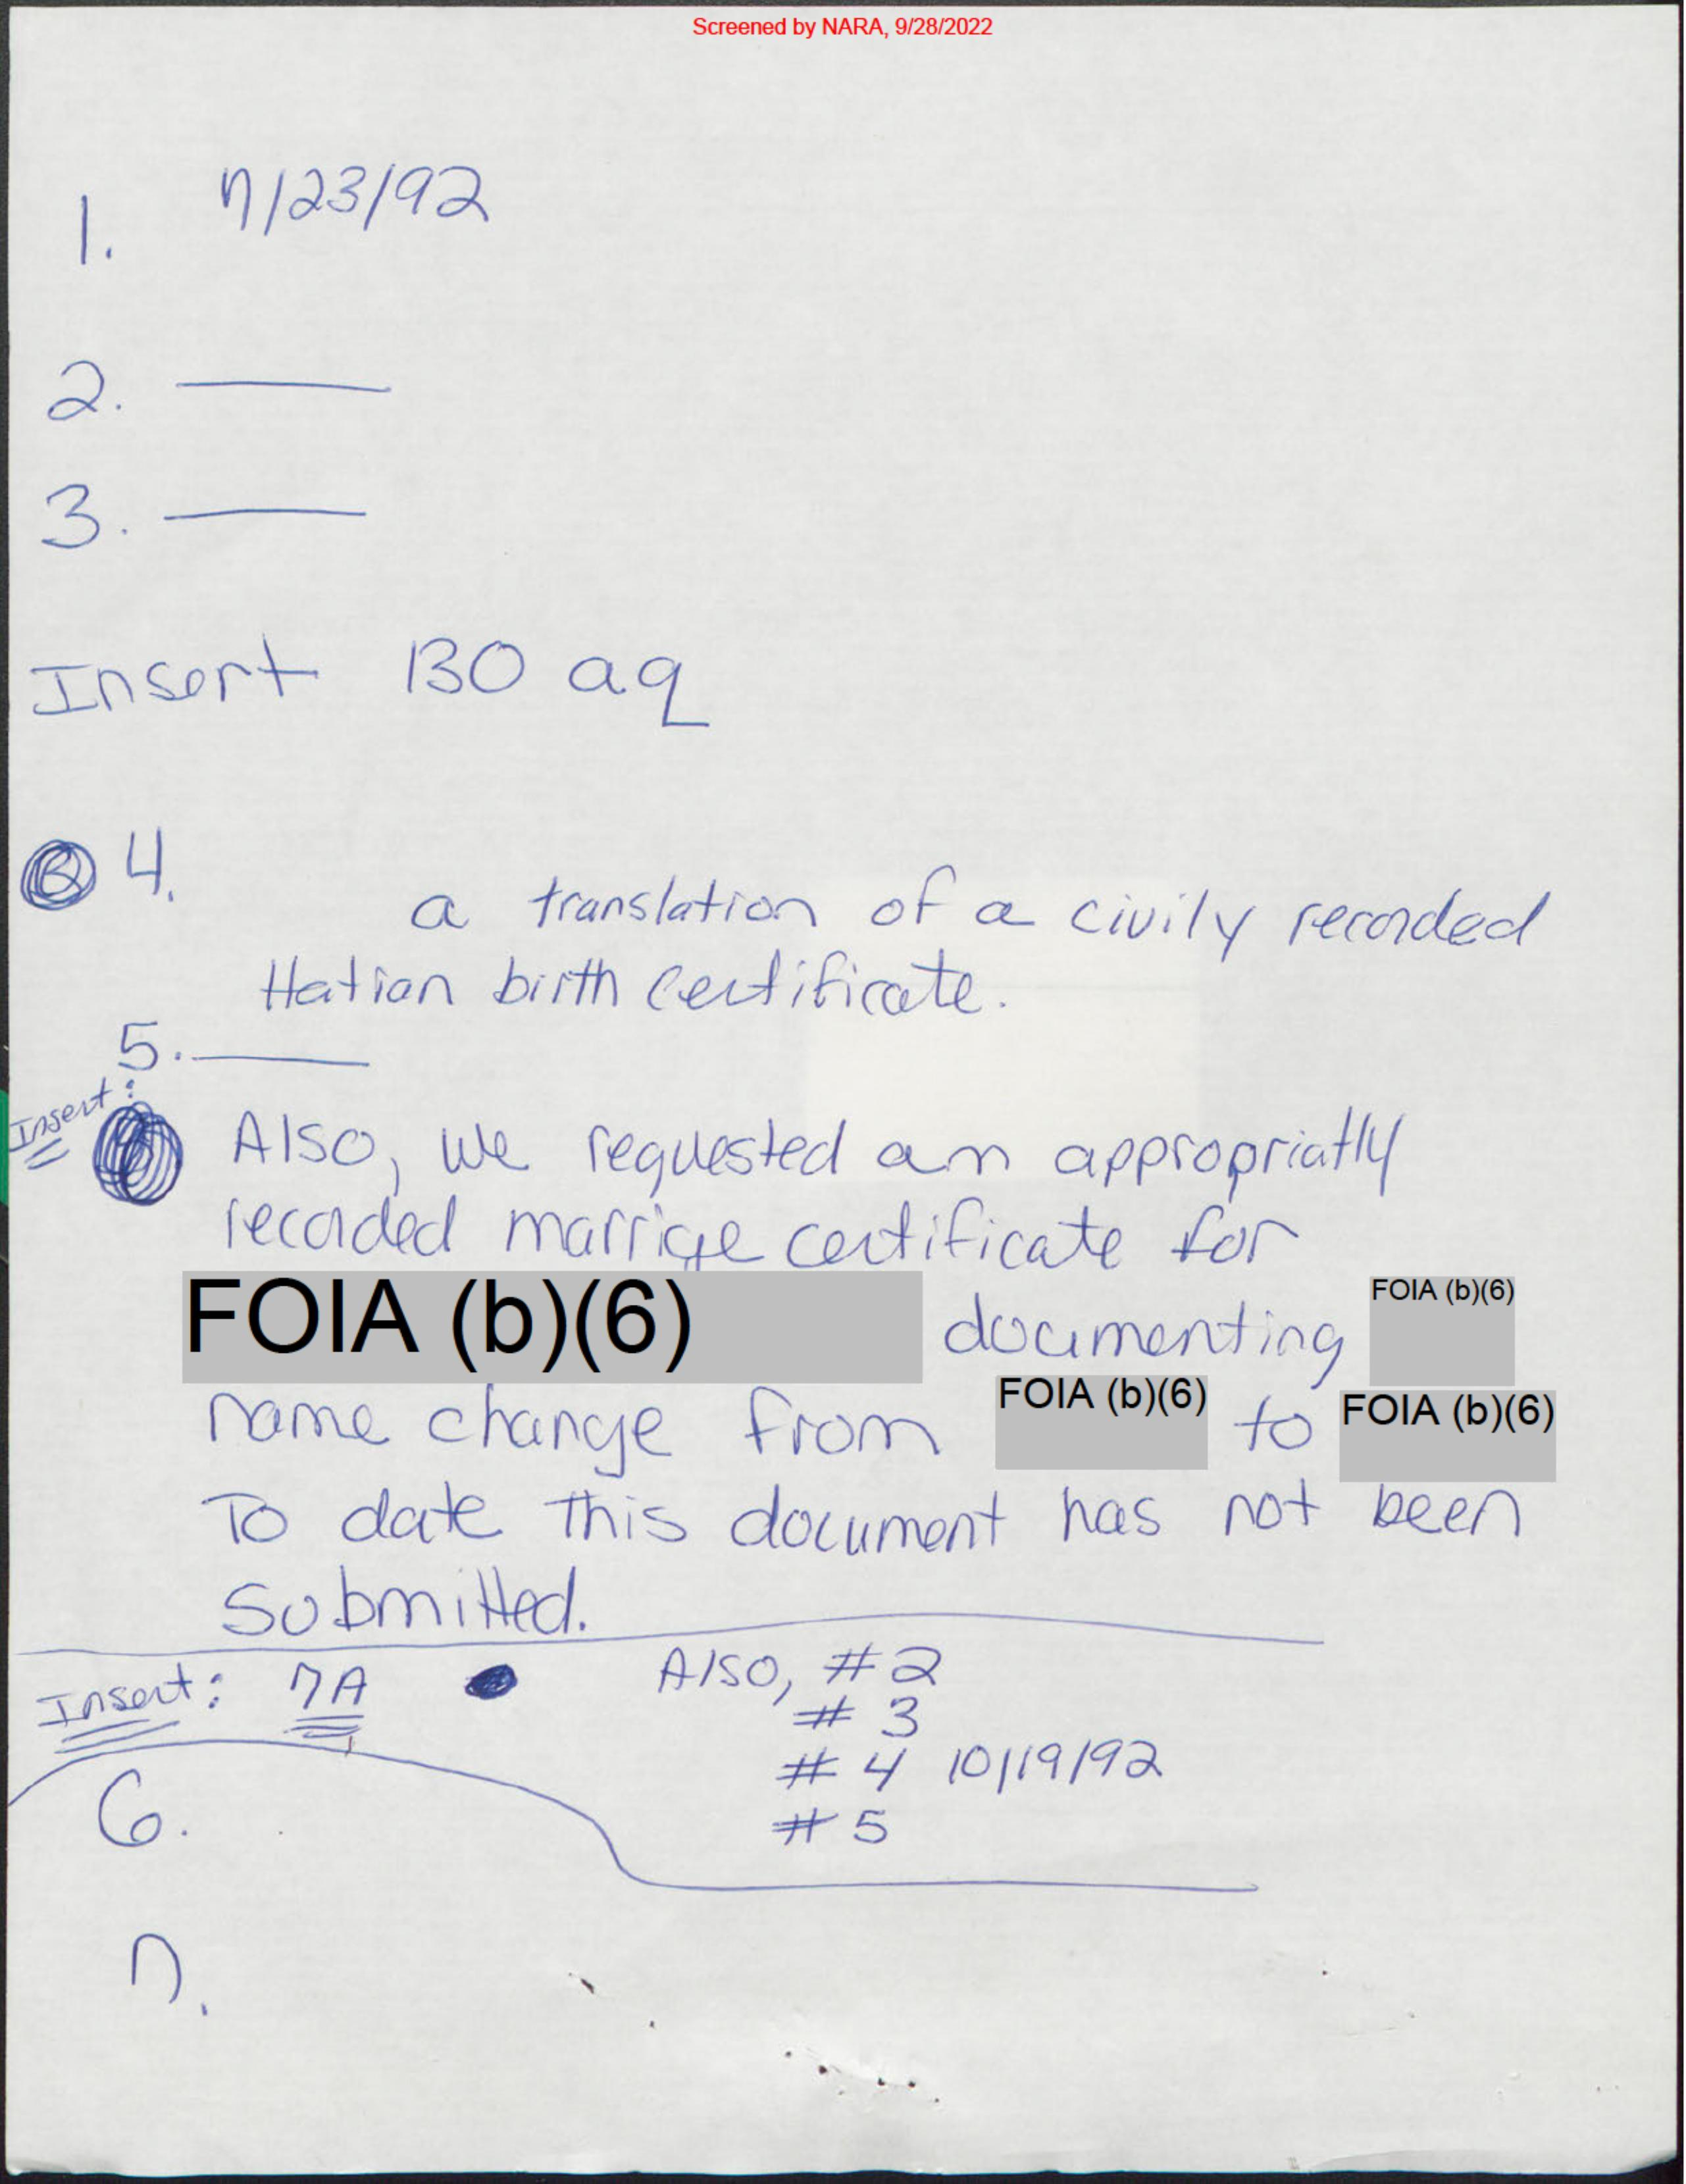 Screened by NARA, 9/28/2022
1. 7/23/92
2.
3.
Insert 130 aq
4.
a translation of a civily recorded
Hatian birth certificate.
5.
Insert:
Also, we requested an appropriatly
recorded marrige certificate for
FOIA (b)(6) documenting FOIA (b)(6)
name change from FOIA (b)(6) to FOIA (b)(6)
To date this document has not been
submitted.
Insert: 7A Also, #2
# 3
# 4 10/19/92
# 5
6.
7.